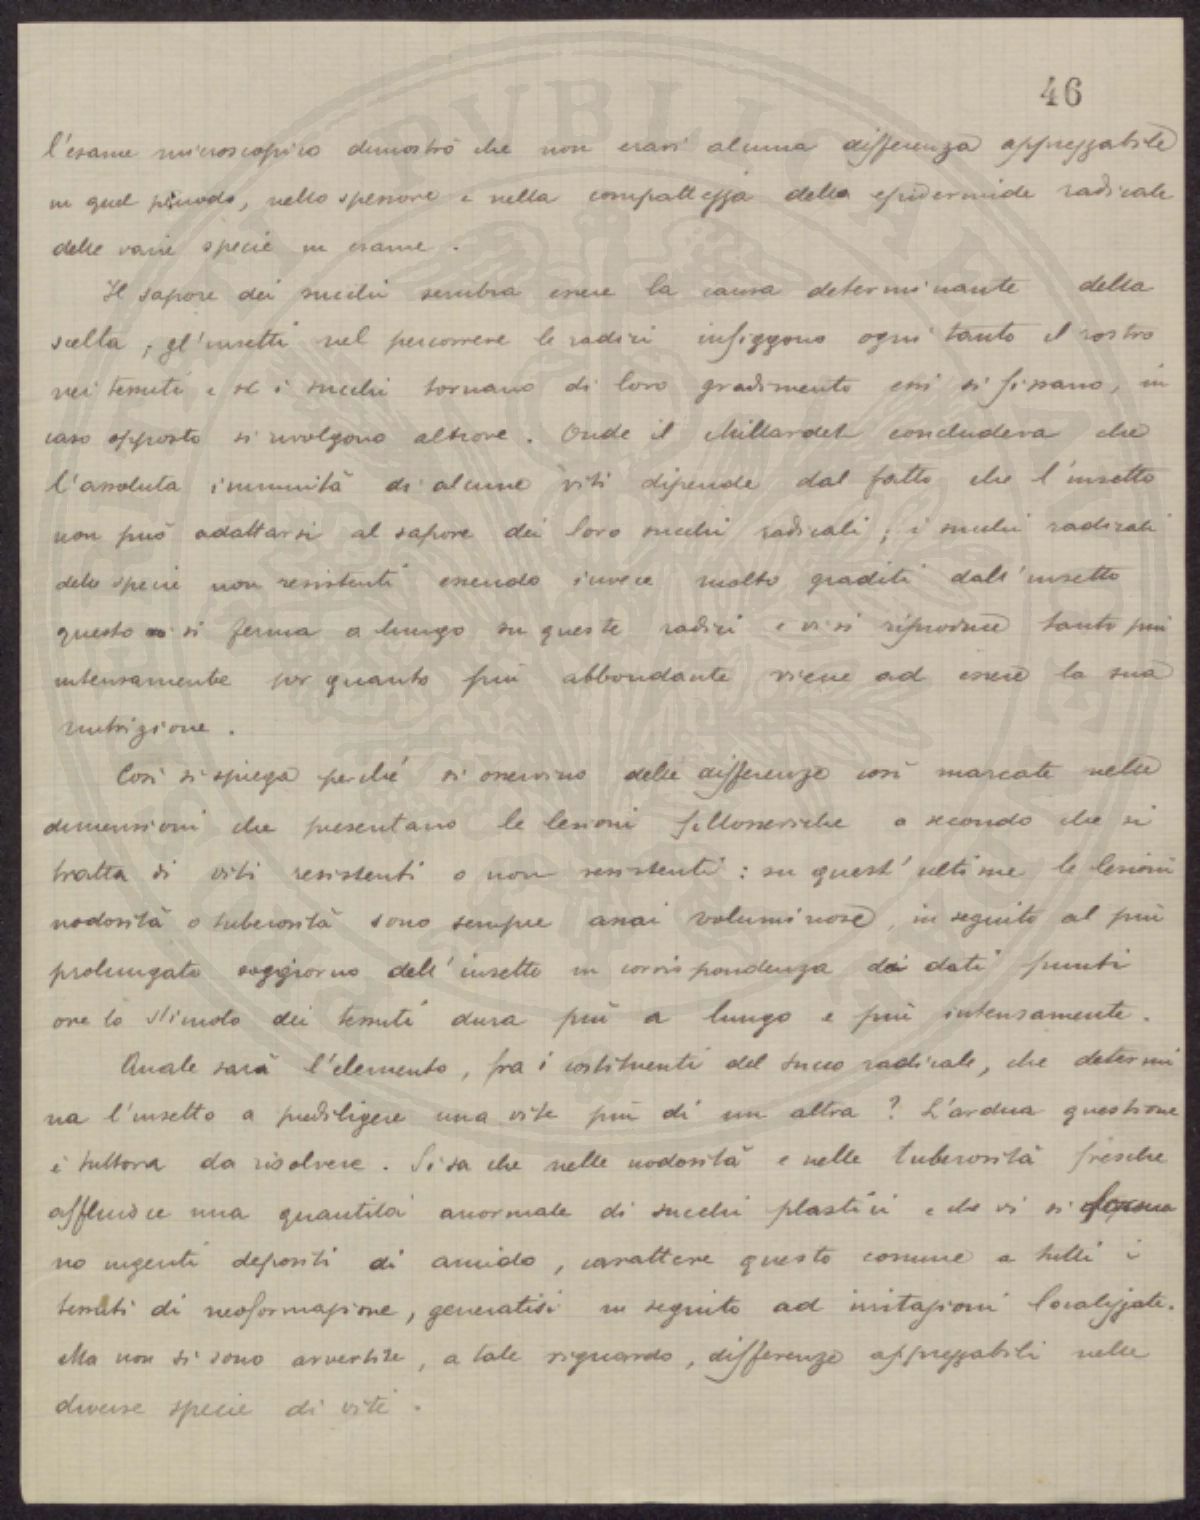 46
l'esame microscopico dimostrò che non eravi alcuna differenza apprezzabile
in quel periodo, nello spessore e nella compattezza della epidermide radicale
delle varie specie in esame.
Il sapore dei succhi sembra essere la causa determinante della
scelta; gl'insetti nel percorrere le radici infiggono ogni tanto il rostro
nei tessuti e se i succhi tornano di loro gradimento essi si fissano, in
caso opposto si rivolgono altrove. Onde il Millardet concludeva che
l'assoluta immunità di alcune viti dipende dal fatto che l'insetto
non può adattarsi al sapore dei loro succhi radicali; i succhi radicali
delle specie non resistenti essendo invece molto graditi dall'insetto
questo si ferma a lungo su queste radici e vi si riproduce tanto più
intensamente per quanto più abbondante viene ad essere la sua
nutrizione.
Così si spiega perché si osservino delle differenze così marcate nelle
dimensioni che presentano le lesioni fillosseriche a secondo che si
tratta di viti resistenti o non resistenti: su quest'ultime le lesioni
nodosità o tuberosità sono sempre assai voluminose, in seguito al più
prolungato soggiorno dell'insetto in corrispondenza di dati punti
ove lo stimolo dei tessuti dura più a lungo e più intensamente.
Quale sarà l'elemento, fra i costituenti del succo radicale, che determi
na l'insetto a prediligere una vite più di un altra? L'ardua questione
è tuttora da risolvere. Si sa che nelle nodosità e nelle tuberosità fresche
affluisce una quantità anormale di succhi plastici e che vi si forma
no ingenti depositi di amido, carattere questo comune a tutti i
tessuti di neoformazione, generatisi in seguito ad irritazioni localizzate.
Ma non si sono avvertite, a tale riguardo, differenze apprezzabili nelle
diverse specie di viti.